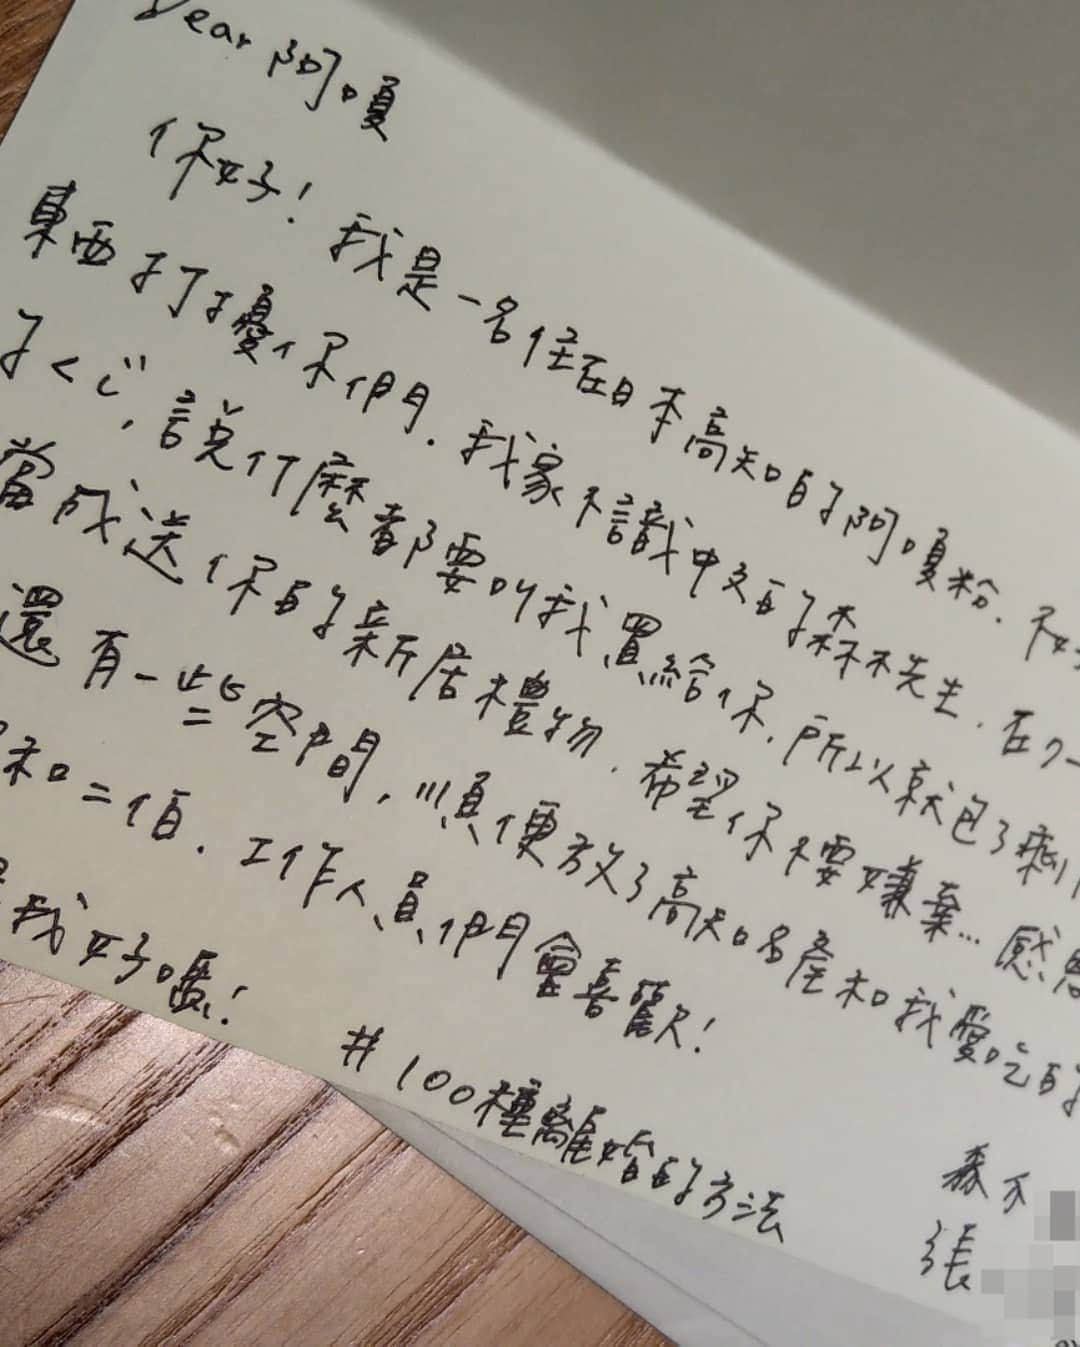 Dear 阿嘎
你好! 我是一名住在日本高知的阿嘎粉. 不好
東西打擾你們. 我家不識中文的森下先生. 在
說什麼都要叫我買給你, 所以就包了剩
當成送你的新居禮物. 希望你不要嫌棄... 感恩
還有一些空間, 順便放了高知名產和我愛吃的
和二伯. 工作人員們會喜歡!
我好嗎!
#100種離婚的方法
森下
張